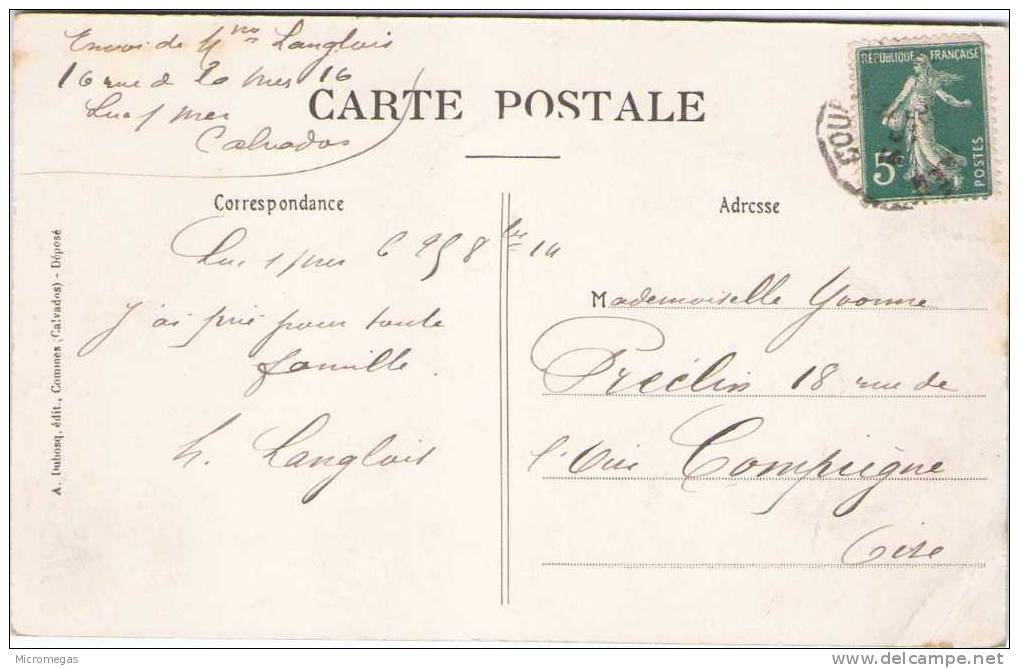 Envoi de Mme Langlois
16 rue de la mer 16
Luc s/ mer
Calvados
CARTE POSTALE
RÉPUBLIQUE FRANÇAISE
5c
POSTES
COUR
Correspondance
Adresse
Luc s mer 6 bre 14
J'ai prié pour toute
famille.
h. Langlois
Mademoiselle Yvonne
Préclin 18 rue de
l'Oise Compiègne
Oise
A. Dubosq, édit., Commes (Calvados) - Déposé
Micromegas
delcampe.net